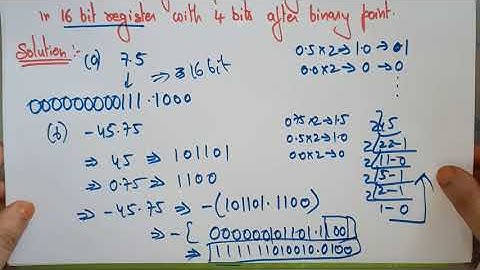 in 16 bit register with 4 bits after binary point.
Solution :-
(a) 7.5
⇒ 16 bit
000000000111.1000
(b) -45.75
⇒ 45 ⇒ 101101
⇒ 0.75 ⇒ 1100
⇒ -45.75 ⇒ -(101101.1100)
⇒ -{ 000000101101.1100
⇒ 111111010010.0100
0.5x2 → 1.0 → 1
0.0x2 → 0 → 0
0.75x2 → 1.5
0.5x2 → 1.0
0.0x2 → 0
2 45
2 22-1
2 11-0
2 5-1
2 2-1
1-0